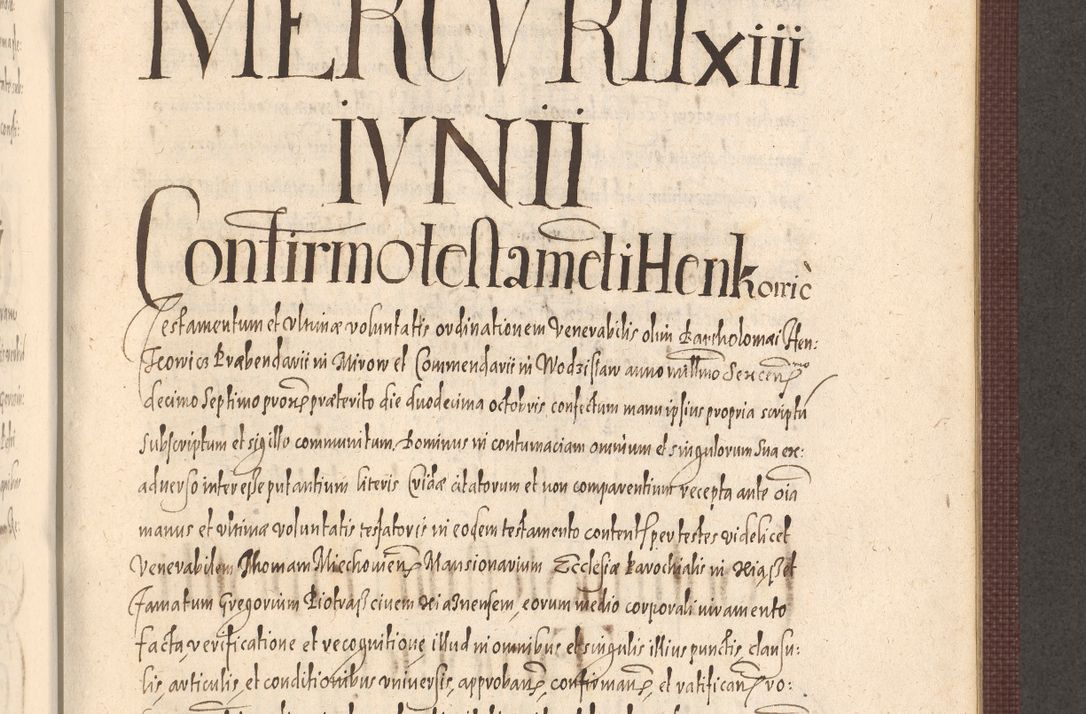 MERCVRII xiii
IVNII
Confirmo testameti Henkowic
Testamentum et vltimæ voluntatis ordinationem Venerabilis olim Bartholomæi Hen:
kowicz Præbendarii in Mirow et Commendarii in Wodzislaw anno millmo Sexcen mo
decimo septimo pron præterito die duodecima octobris confectum manu ipsius propria scriptu
subscriptum et sigillo communitum, Dominus in contumaciam omnium et singulorum sua ex:
adverso interesse putantium literis Cridæ citatorum et non comparentium recepta ante oia
manus et vltimæ voluntatis testatoris in eodem testamento content per testes videlicet
Venerabilem Thomam Miechouien Mansionarium Ecclesiæ Parochialis in Xiąż et
famatum Gregorium Piotraß ciuem Xiaznensem, eorum medio corporali iuramento
facta, verificatione et recognitione illud in omnibus et singulis illius punctis, clausu:
lis, articulis, et conditionibus vniuersis, approban, confirman, et ratifican vo: